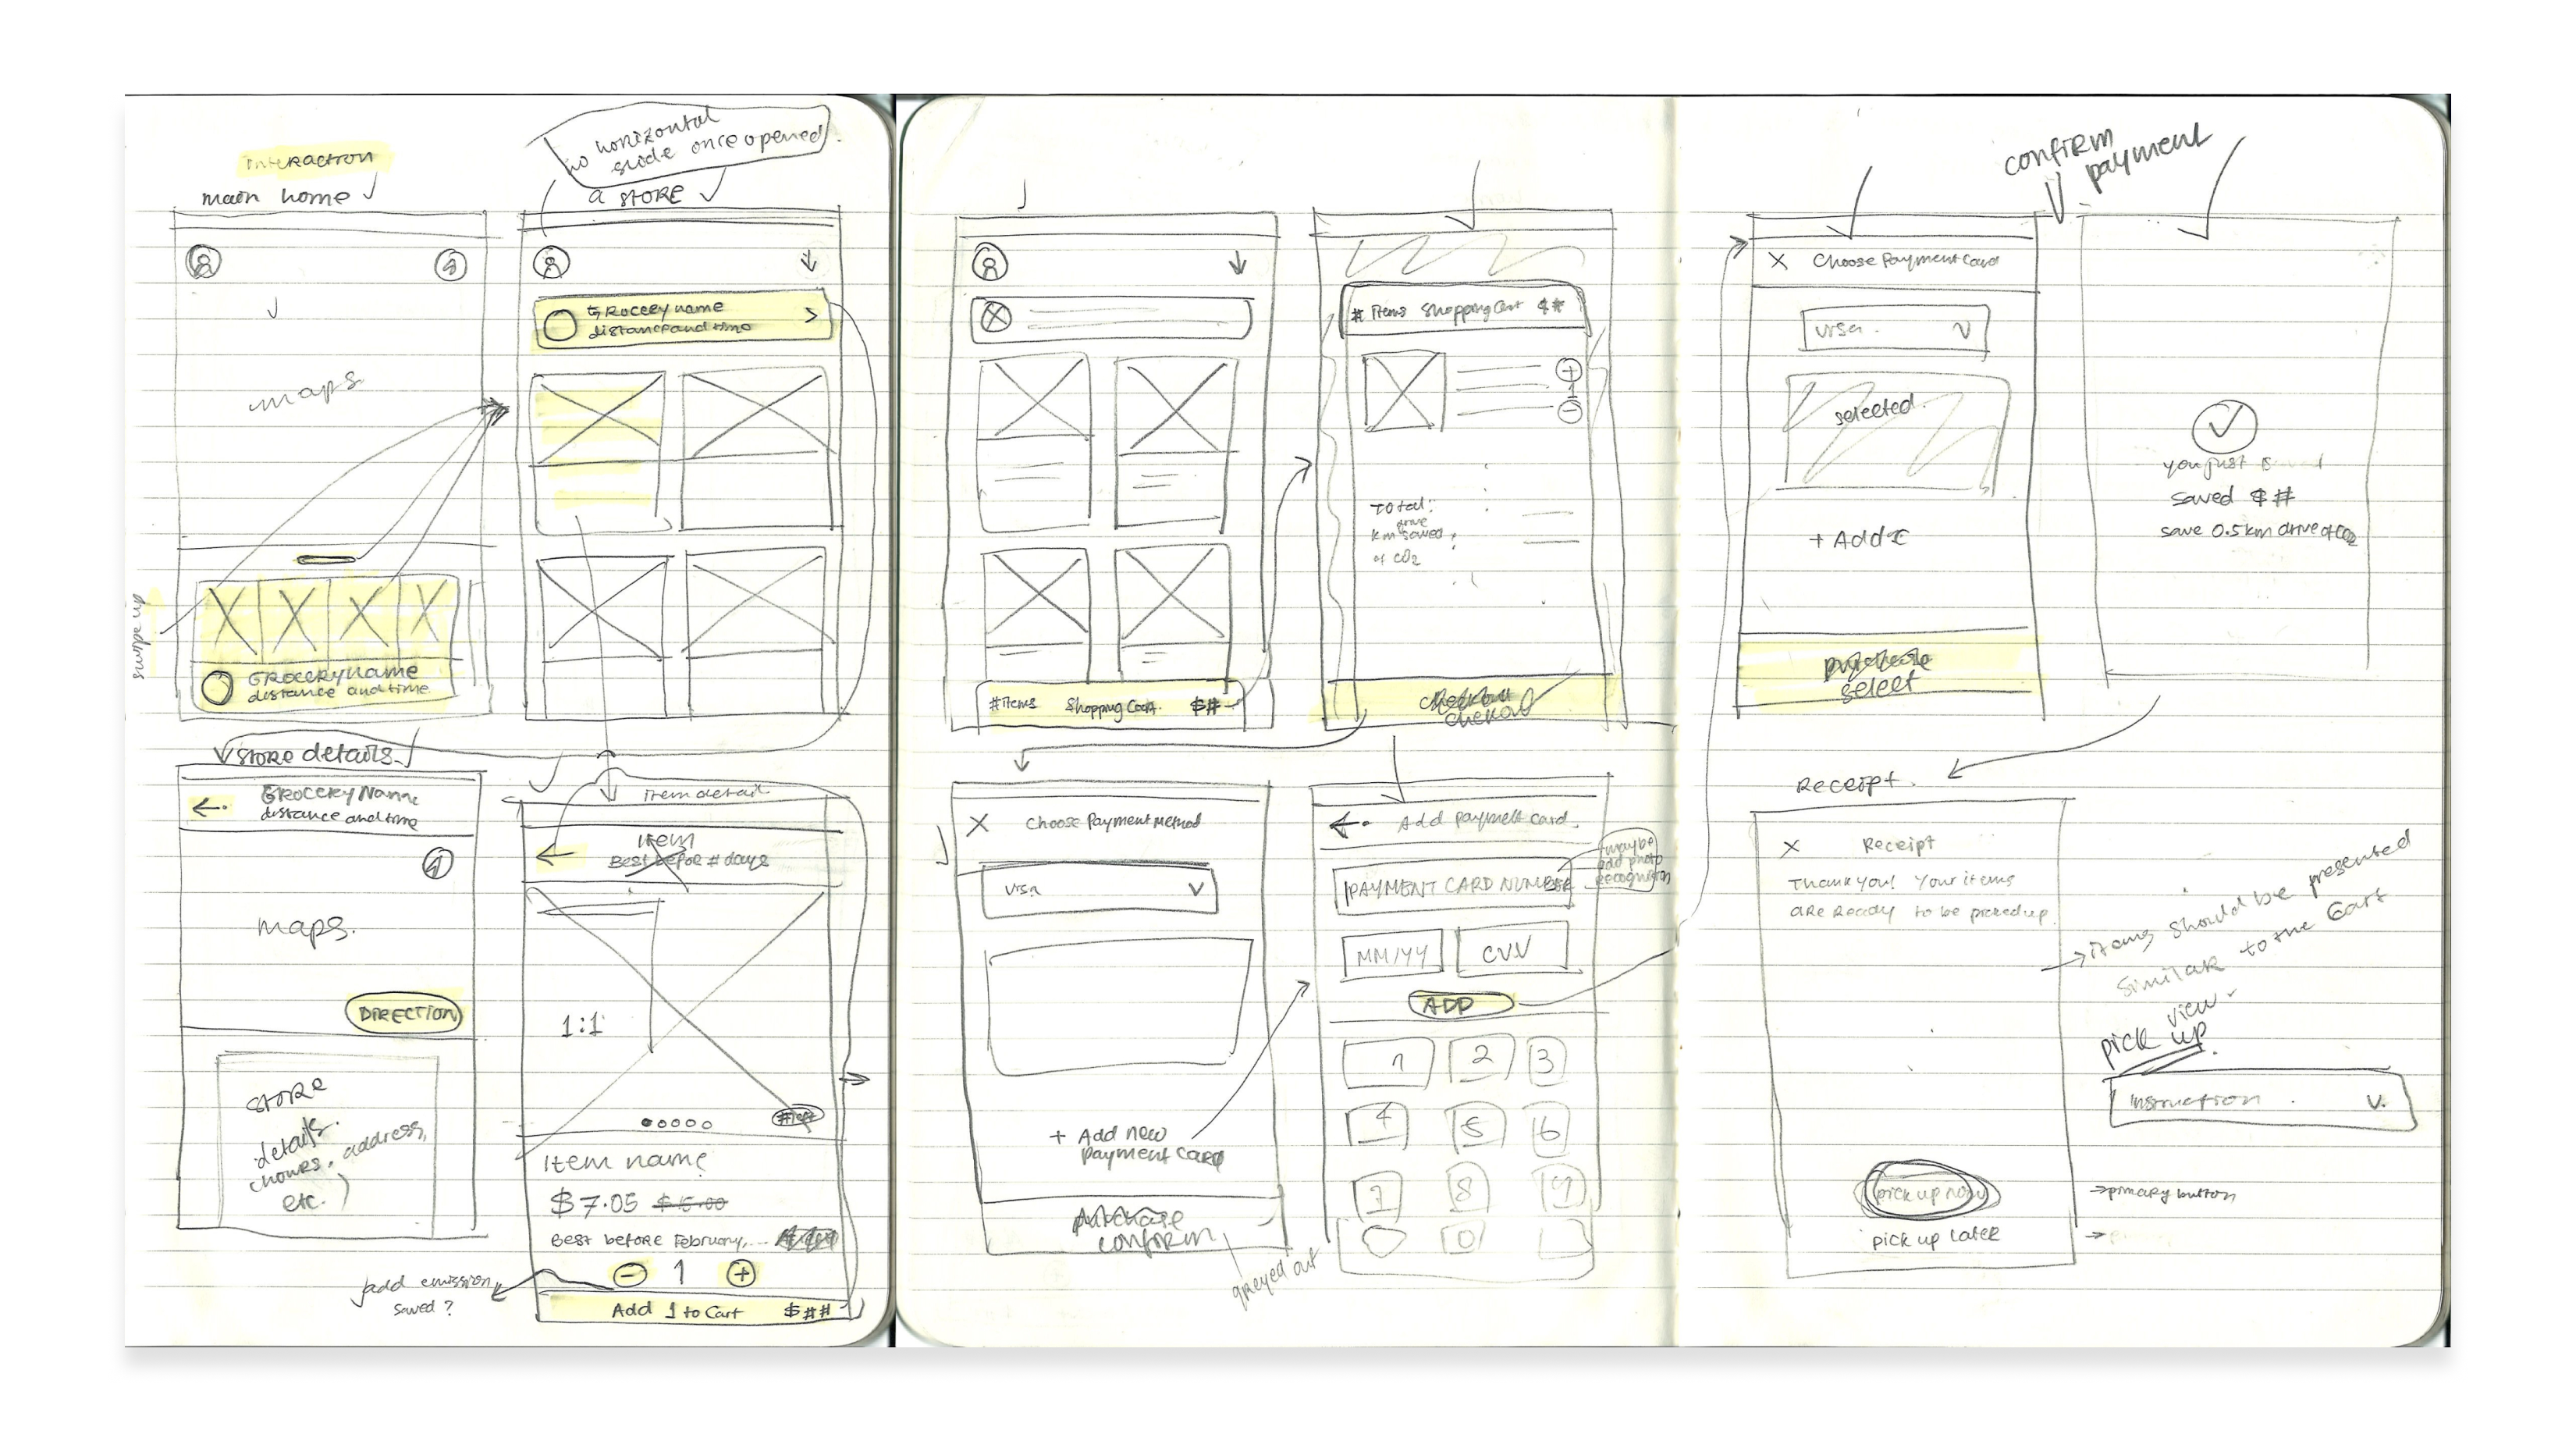 interaction
main home
no horizontal
slide once opened.
a store
maps
swipe up
Grocery name
distance and time
Grocery name
distance and time
store details
Grocery Name
distance and time
maps.
DIRECTION
store
details.
(hours, address,
etc.)
item detail
item
Best before # days
1:1
# left
Item name
$7.05 $15.00
Best before February, ...
1
Add 1 to Cart $##
add emission
saved?
#items Shopping Cart $#
# items Shopping Cart $#
1
Total:
drive
km saved
of CO2
checkout
checkout
X Choose Payment Method
visa
+ Add new
payment card
purchase
confirm
greyed out
Add payment card.
maybe
add photo
recognition
PAYMENT CARD NUMBER
MM/YY CVV
ADD
1 2 3
4 5 6
7 8 9
0
confirm
payment
X Choose Payment Card
visa
selected.
+ Add
purchase
select
you just
saved $#
save 0.5km drive of CO2
Receipt.
X Receipt
Thank you! Your items
are ready to be picked up.
items should be presented
similar to the Cart
view
pick up
instruction
pick up now
primary button
pick up later